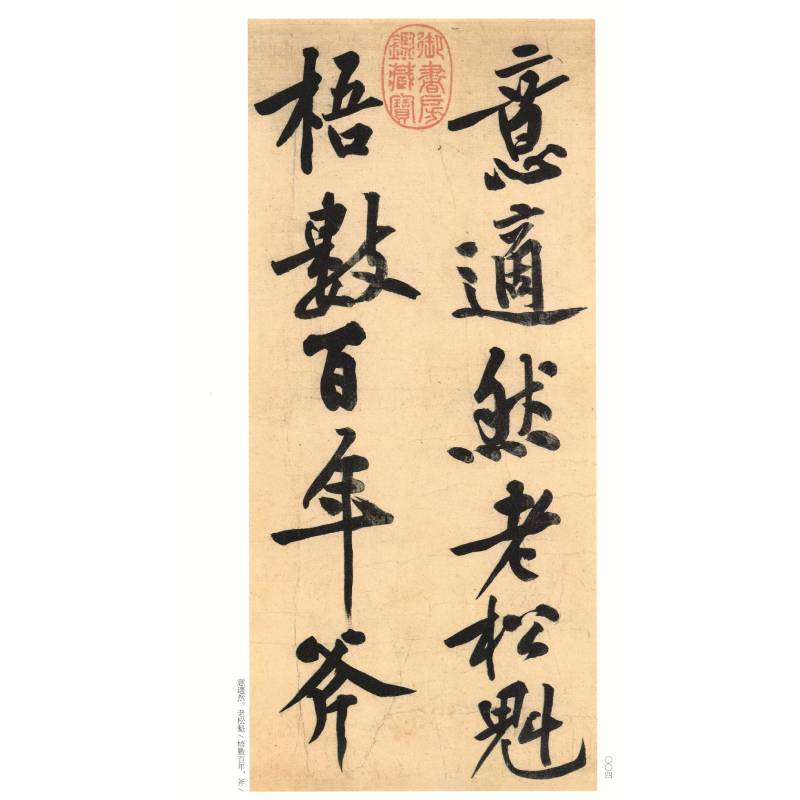 意適然老松魁
梧數百年斧
御書房
鑑藏寶
意適然。老松魁／梧數百年。斧／
〇〇四